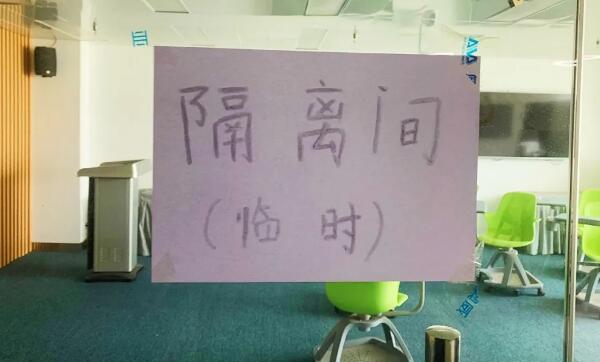 隔离间
(临时)